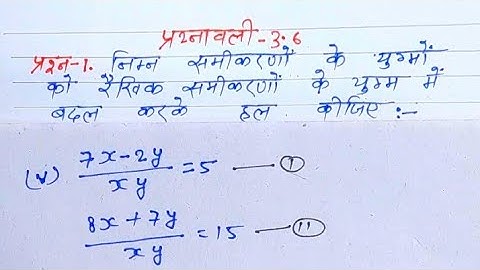 प्रश्नावली-3.6
प्रश्न-1. निम्न समीकरणों के युग्मों
को रैखिक समीकरणों के युग्म में
बदल करके हल कीजिए :-
(v) 7x-2y/xy = 5 — (i)
8x+7y/xy = 15 — (ii)